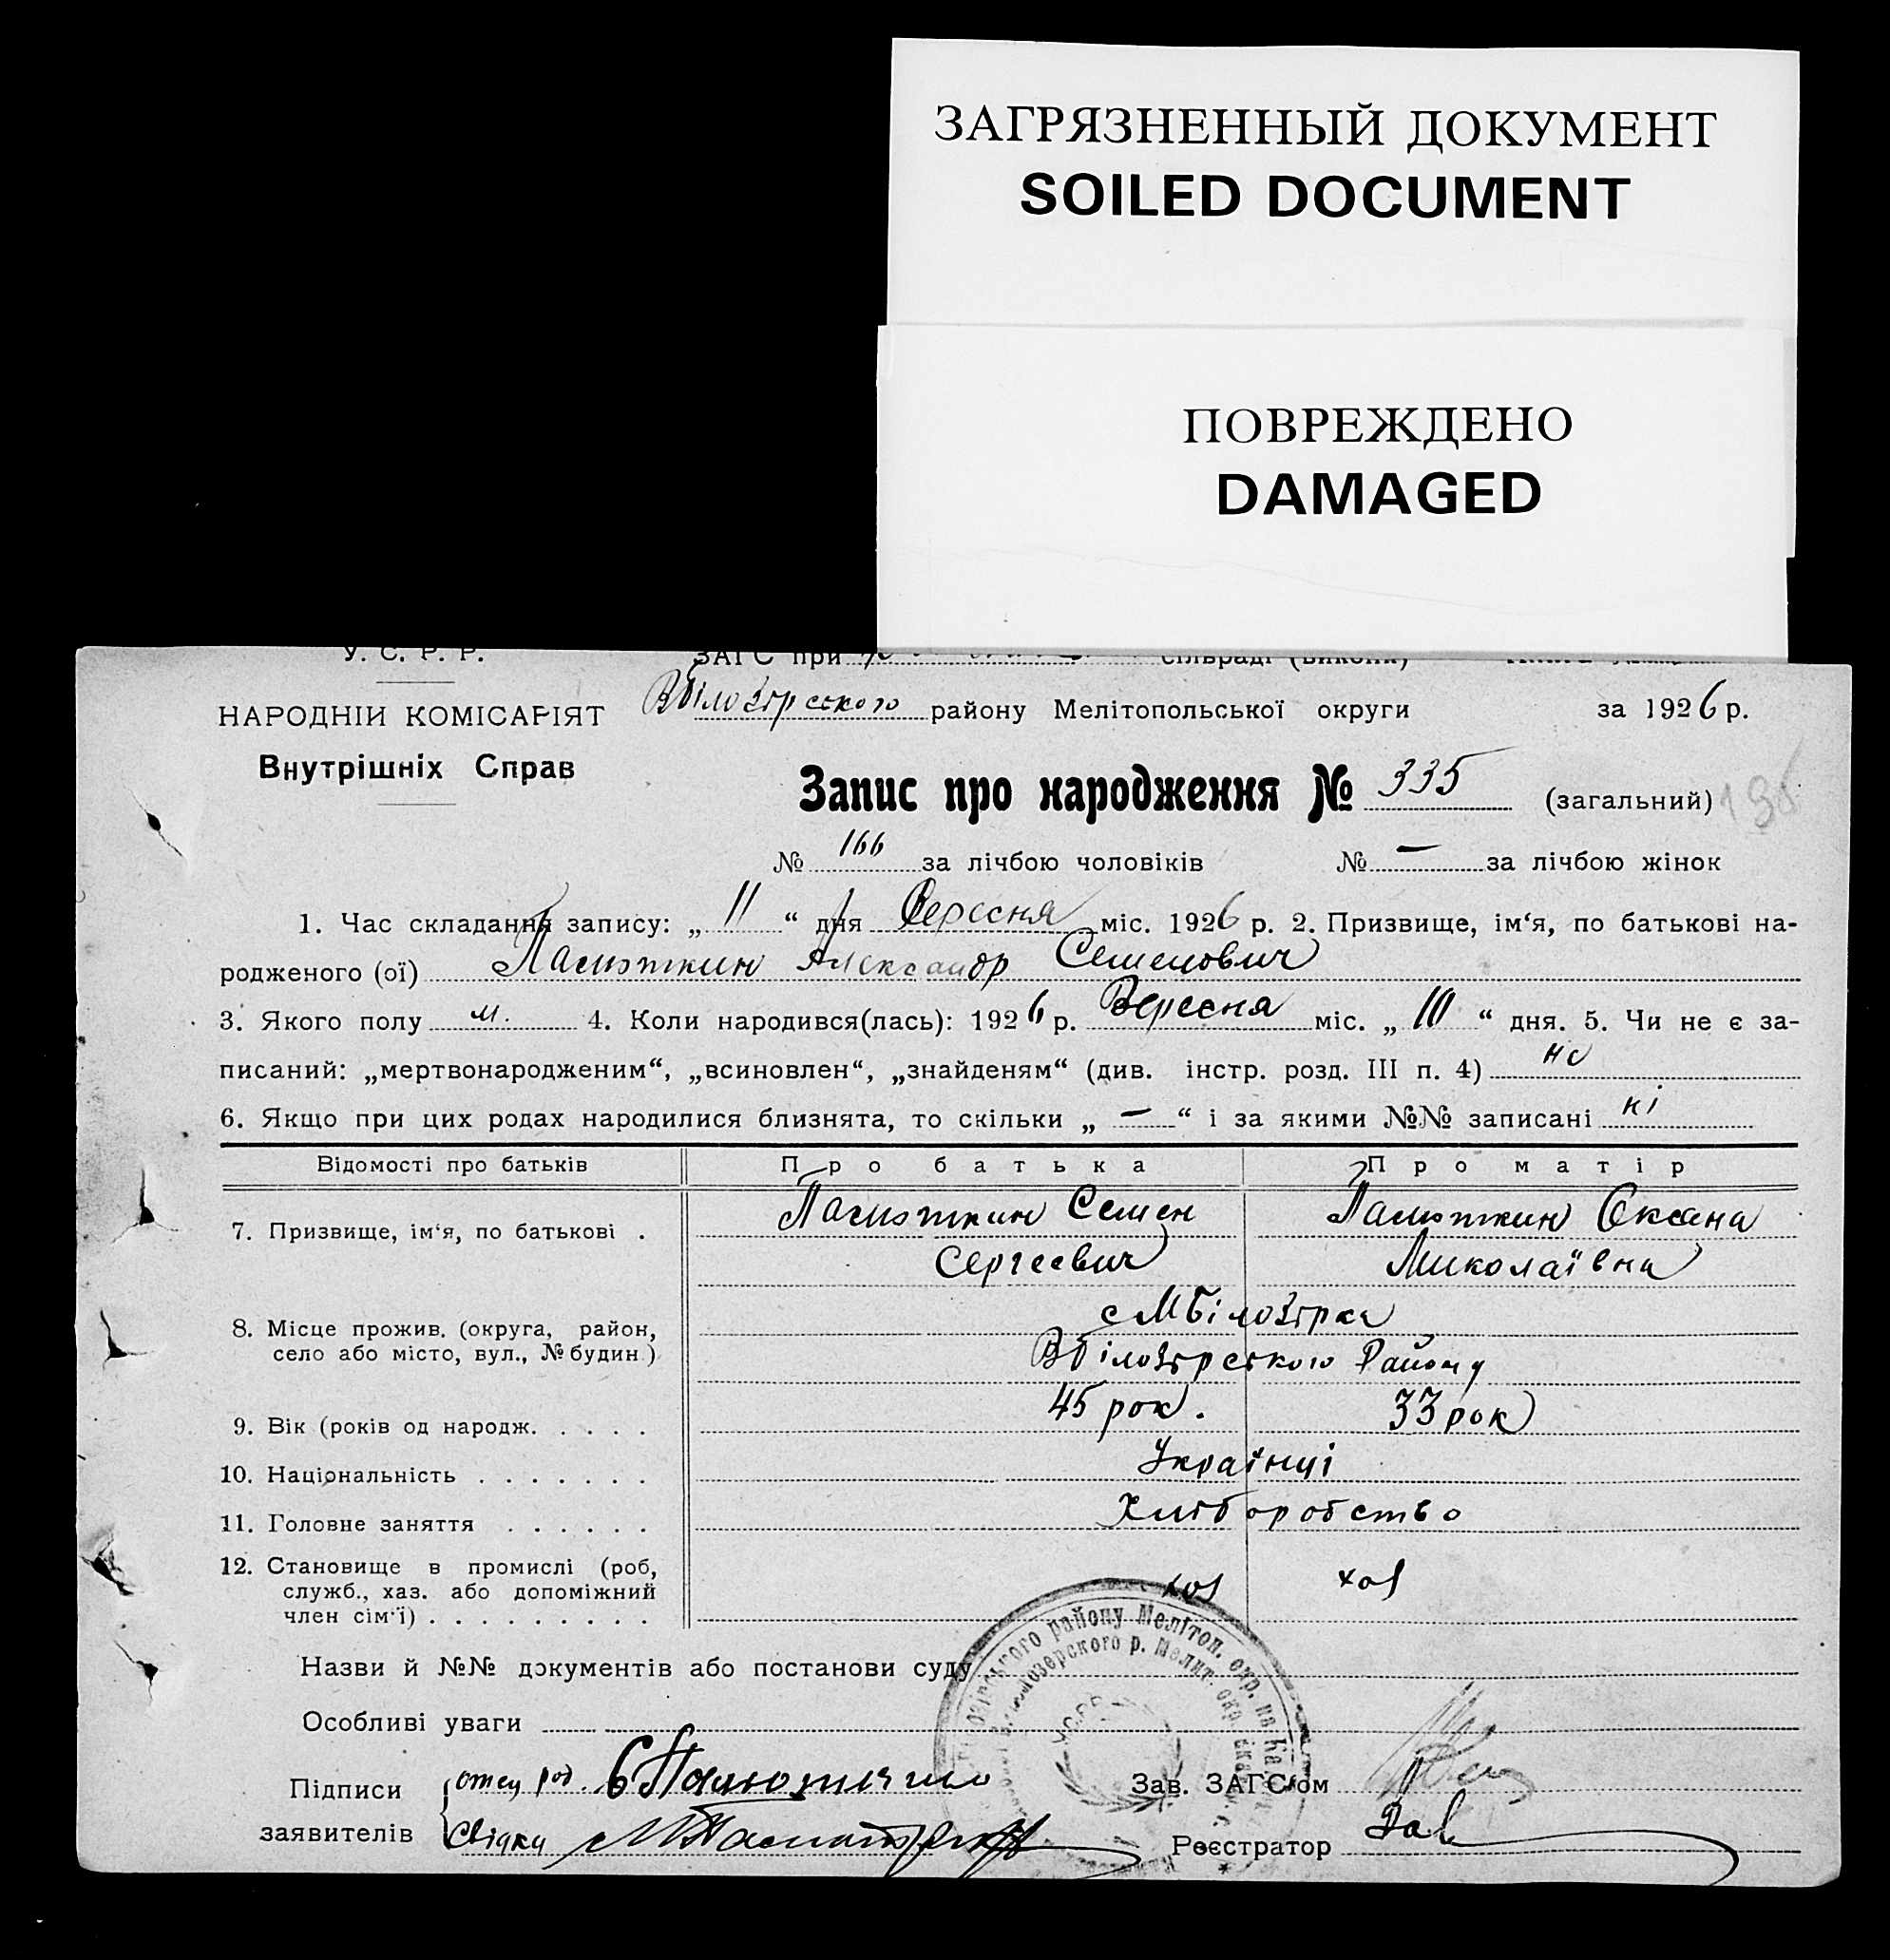 ЗАГРЯЗНЕННЫЙ ДОКУМЕНТ
SOILED DOCUMENT
ПОВРЕЖДЕНО
DAMAGED
У. С. Р. Р.
ЗАГС при сільраді (викони)
НАРОДНІЙ КОМІСАРІЯТ
ВБілозірського району Мелітопольської округи за 1926 р.
Внутрішніх Справ
Запис про народження № 335 (загальний)
№ 166 за лічбою чоловіків № — за лічбою жінок
1. Час складання запису: „ 11 “ дня Вересня міс. 1926 р. 2. Призвище, ім‘я, по батькові на-
родженого (ої) Палюткин Александр Семенович
3. Якого полу м. 4. Коли народився(лась): 1926 р. Вересня міс. „ 10 “ дня. 5. Чи не є за-
писаний: „мертвонародженим“, „всиновлен“, „знайденям“ (див. інстр. розд. III п. 4)
6. Якщо при цих родах народилися близнята, то скільки „ — “ і за якими №№ записані ні
Відомості про батьків Про батька Про матір
7. Призвище, ім‘я, по батькові . Палюткин Семен Палюткин Оксана
Сергеевич Миколаївна
8. Місце прожив. (округа, район, с МБілозірка
село або місто, вул., № будин.) ВБілозірського Району
9. Вік (років од народж. . . . . 45 рок. 33 рок
10. Національність . . . . . . . Українці
11. Головне заняття . . . . . . Хліборобство
12. Становище в промислі (роб,
служб., хаз. або допоміжний хоз хоз
член сім‘ї) . . . . . . . . .
Назви й №№ документів або постанови суду
Особливі уваги
Підписи отец род. Зав. ЗАГС‘ом
заявителів Свідки Реєстратор